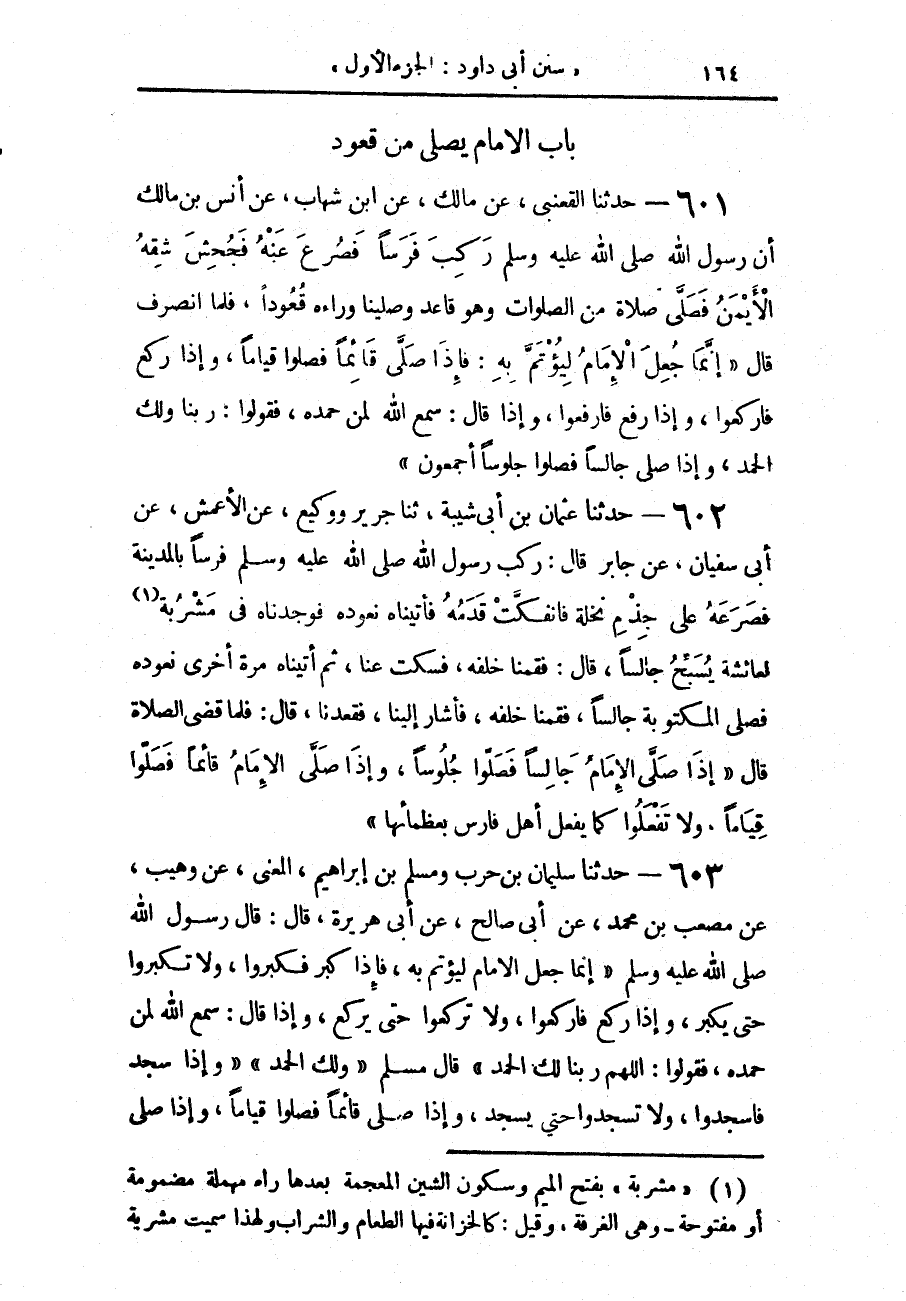 ١٦٤ « سنن أبى داود : الجزء الأول »
باب الامام يصلى من قعود
٦٠١ — حدثنا القعنبى ، عن مالك ، عن ابن شهاب ، عن أنس بن مالك
أن رسول الله صلى الله عليه وسلم رَكِبَ فَرَساً فَصُرِعَ عَنْهُ فَجُحِشَ شقِهُ
الْأَيْمَنُ فَصَلَّى صلاة من الصلوات وهو قاعد وصلينا وراءه قُعُوداً ، فلما انصرف
قال « إنَّمَا جُعِلَ الْإِمَامُ لِيُؤْتَمَّ بِهِ : فإِذَا صَلَّى قَائِمًا فصلوا قياماً ، وإذا ركع
فاركعوا ، وإذا رفع فارفعوا ، وإذا قال : سمع الله لمن حمده ، فقولوا : ربنا ولك
الحمد ، وإذا صلى جالساً فصلوا جلوساً أجمعون »
٦٠٢ — حدثنا عثمان بن أبى شيبة ، ثنا جرير ووكيع ، عن الأعمش ، عن
أبى سفيان ، عن جابر قال : ركب رسول الله صلى الله عليه وسلم فرساً بالمدينة
فصَرَعَهُ على جِذْمِ نخلة فانفكَّتْ قَدَمُهُ فأتيناه نعوده فوجدناه فى مَشْرُبة (١)
لعائشة يُسَبِّحُ جالساً ، قال : فقمنا خلفه ، فسكت عنا ، ثم أتيناه مرة أخرى نعوده
فصلى المكتوبة جالساً ، فقمنا خلفه ، فأشار إلينا ، فقعدنا ، قال : فلما قضى الصلاة
قال « إذَا صَلَّى الإِمَامُ جَالِساً فَصَلّوا جُلُوساً ، وإذَا صَلَّى الإِمَامُ قائماً فَصَلّوا
قِيَاماً . ولا تَفْعَلُوا كما يفعل أهل فارس بعظمائها »
٦٠٣ — حدثنا سليمان بن حرب ومسلم بن إبراهيم ، المعنى ، عن وهيب ،
عن مصعب بن محمد ، عن أبى صالح ، عن أبى هريرة ، قال : قال رسول الله
صلى الله عليه وسلم « إنما جعل الامام ليؤتم به ، فإذا كبر فكبروا ، ولا تكبروا
حتى يكبر ، وإذا ركع فاركعوا ، ولا تركعوا حتى يركع ، وإذا قال : سمع الله لمن
حمده ، فقولوا : اللهم ربنا لك الحمد » قال مسلم « ولك الحمد » « وإذا سجد
فاسجدوا ، ولا تسجدوا حتي يسجد ، وإذا صلى قائماً فصلوا قياماً ، وإذا صلى
(١) « مشربة » بفتح الميم وسكون الشين المعجمة بعدها راء مهملة مضمومة
أو مفتوحة - وهى الغرفة ، وقيل : كالخزانة فيها الطعام والشراب ولهذا سميت مشربة